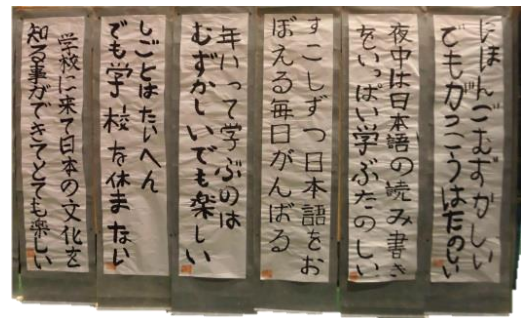 にほんごむずかしい
でもがっこうはたのしい
夜中は日本語の読み書き
をいっぱい学ぶたのしい
すこしずつ日本語をお
ぼえる毎日がんばる
年いって学ぶのは
むずかしいでも楽しい
しごとはたいへん
でも学校な休まない
学校に来て日本の文化を
知る事ができてとても楽しい